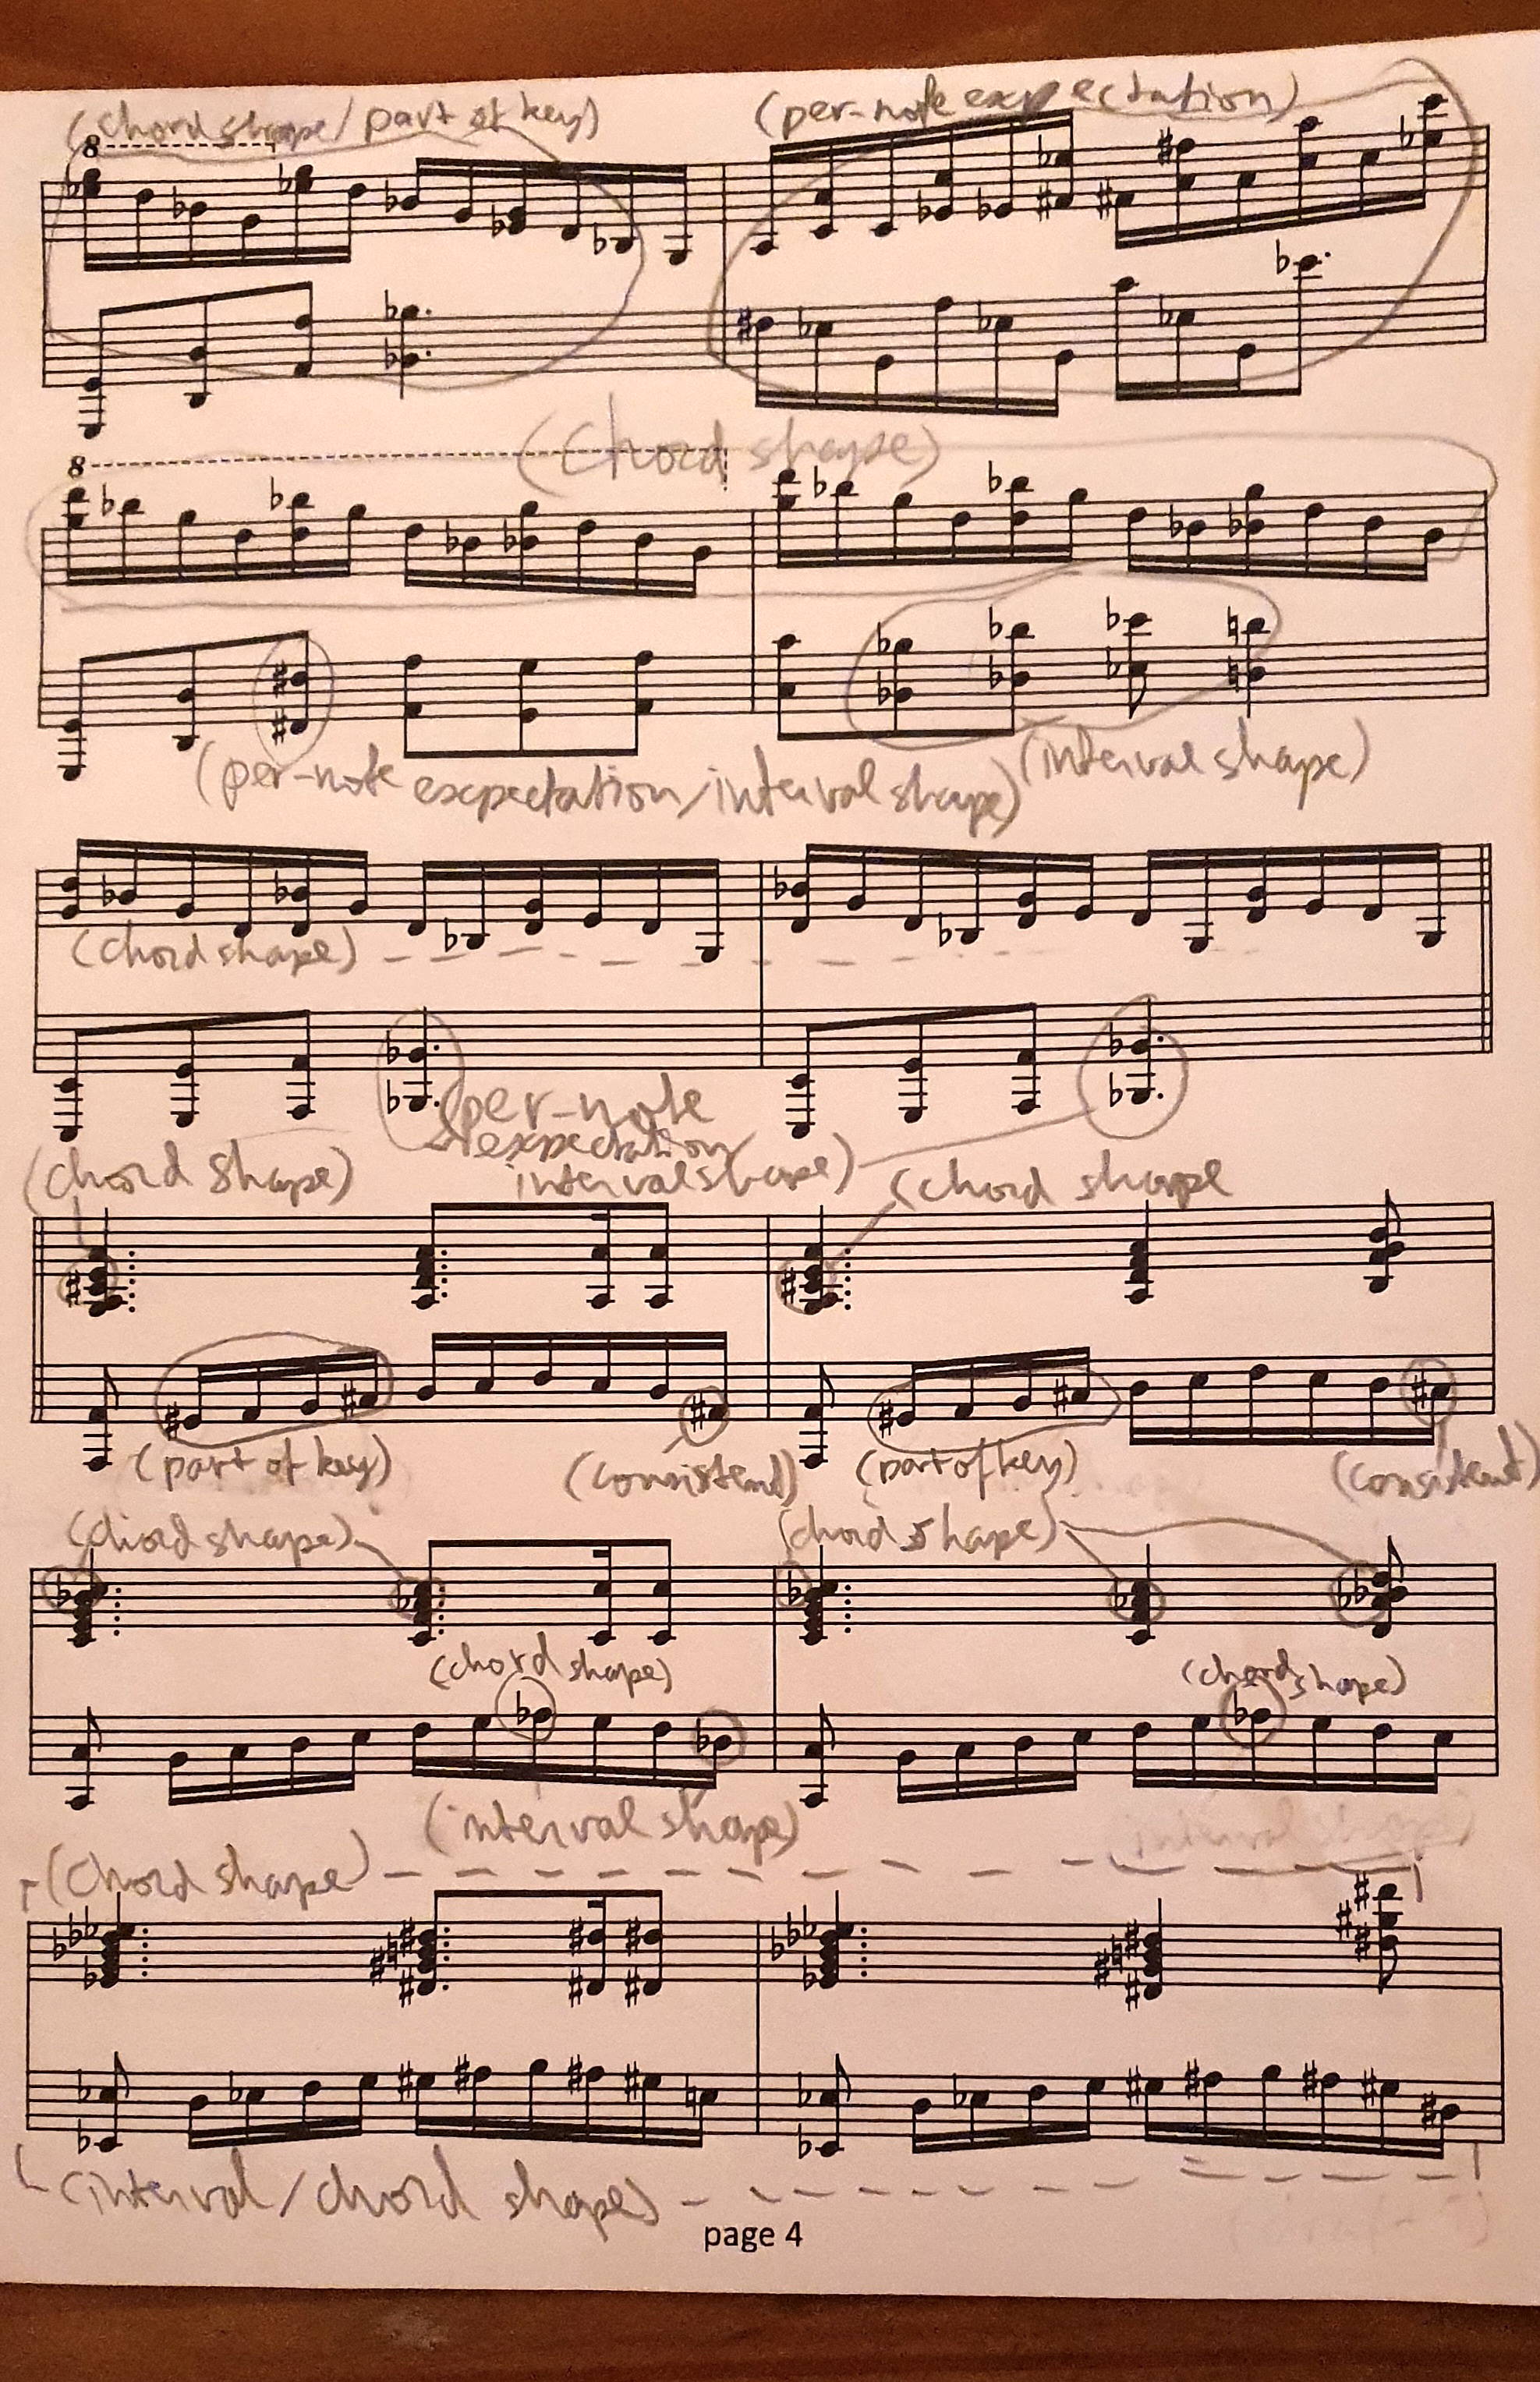 (chord shape/part of key) (per-note expectation)
8
(Chord shape)
8
(per-note expectation/interval shape) (interval shape)
(chord shape)
(per-note
expectation/
interval shape)
(chord shape) (chord shape
(part of key) (consistend) (part of key) (consistend)
(chord shape) (chord shape)
(chord shape) (chord shape)
(interval shape)
(Chord shape)
(interval/chord shape)
page 4